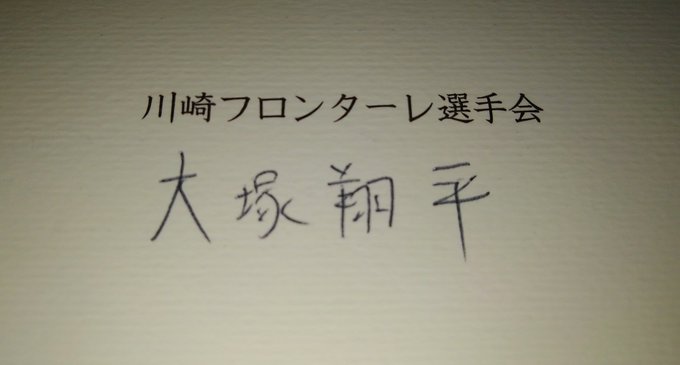 川崎フロンターレ選手会
大塚翔平